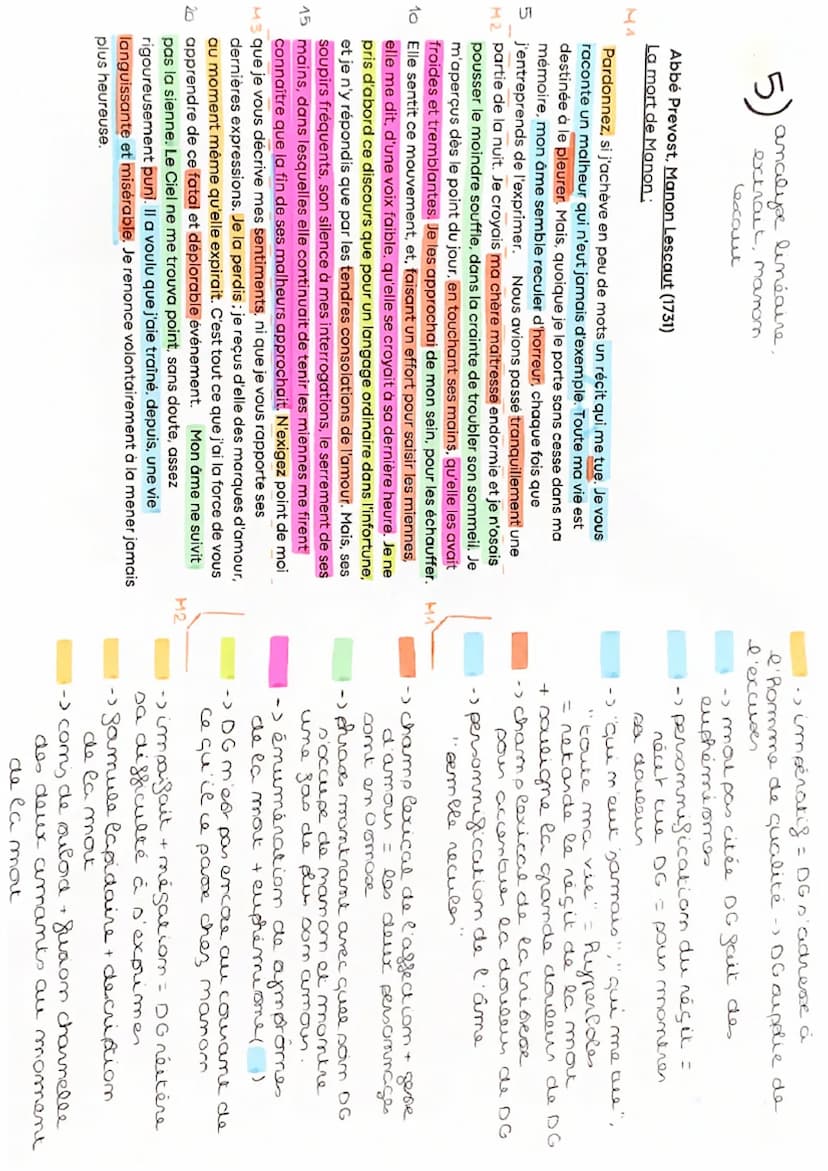 5) analyse linéaire,
extrait, manon
lescaut
Abbé Prevost, Manon Lescaut (1731)
La mort de Manon :
M1
Pardonnez, si j'achève en peu de mots un récit qui me tue. Je vous
raconte un malheur qui n'eut jamais d'exemple. Toute ma vie est
destinée à le pleurer. Mais, quoique je le porte sans cesse dans ma
mémoire, mon âme semble reculer d'horreur, chaque fois que
5 j'entreprends de l'exprimer. Nous avions passé tranquillement une
M2 partie de la nuit. Je croyais ma chère maîtresse endormie et je n'osais
pousser le moindre souffle, dans la crainte de troubler son sommeil. Je
m'aperçus dès le point du jour, en touchant ses mains, qu'elle les avait
froides et tremblantes. Je les approchai de mon sein, pour les échauffer.
10 Elle sentit ce mouvement, et, faisant un effort pour saisir les miennes,
elle me dit, d'une voix faible, qu'elle se croyait à sa dernière heure. Je ne
pris d'abord ce discours que pour un langage ordinaire dans l'infortune,
et je n'y répondis que par les tendres consolations de l'amour. Mais, ses
soupirs fréquents, son silence à mes interrogations, le serrement de ses
15 mains, dans lesquelles elle continuait de tenir les miennes me firent
connaître que la fin de ses malheurs approchait. N'exigez point de moi
M3 que je vous décrive mes sentiments, ni que je vous rapporte ses
dernières expressions. Je la perdis ; je reçus d'elle des marques d'amour,
au moment même qu'elle expirait. C'est tout ce que j'ai la force de vous
20 apprendre de ce fatal et déplorable événement. Mon âme ne suivit
pas la sienne. Le Ciel ne me trouva point, sans doute, assez
rigoureusement puni. Il a voulu que j'aie traîné, depuis, une vie
languissante et misérable. Je renonce volontairement à la mener jamais
plus heureuse.
-> impératif = DG s'adresse à
l'homme de qualité -> DG supplie de
l'excuser
-> mort pas citée DG fait des
euphémismes
-> personnification du récit =
récit tue DG = pour montrer
sa douleur
-> "qui n'eut jamais", "qui me tue",
"toute ma vie" = hyperboles
= retarde le récit de la mort
+ souligne la grande douleur de DG
-> champ lexical de la tristesse
pour accentuer la douleur de DG
-> personnification de l'âme
"semble reculer"
M1
-> champ lexical de l'affection + geste
d'amour = les deux personnages
sont en osmose
-> phrases montrant avec quel soin DG
s'occupe de manon et montre
une fois de plus son amour.
-> énumération de symptômes
de la mort + euphémisme ( )
-> DG n'est pas encore au courant de
ce qu'il se passe chez manon
M2
-> impératif + négation = DG réitère
sa difficulté à s'exprimer
-> formule lapidaire + description
de la mort
-> comj de subord + fusion charnelle
des deux amants au moment
de la mort